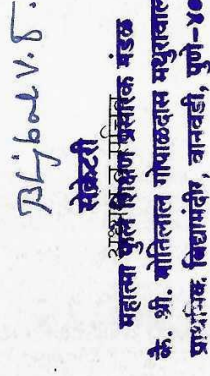 Bhjbal V. S.
सेक्रेटरी
महात्मा फुले शिक्षण प्रसारक मंडळ
कै. श्री. मोतिलाल गोपाळदास मथुरावाल
प्राथमिक विद्यामंदीर, वानवडी, पुणे-४०